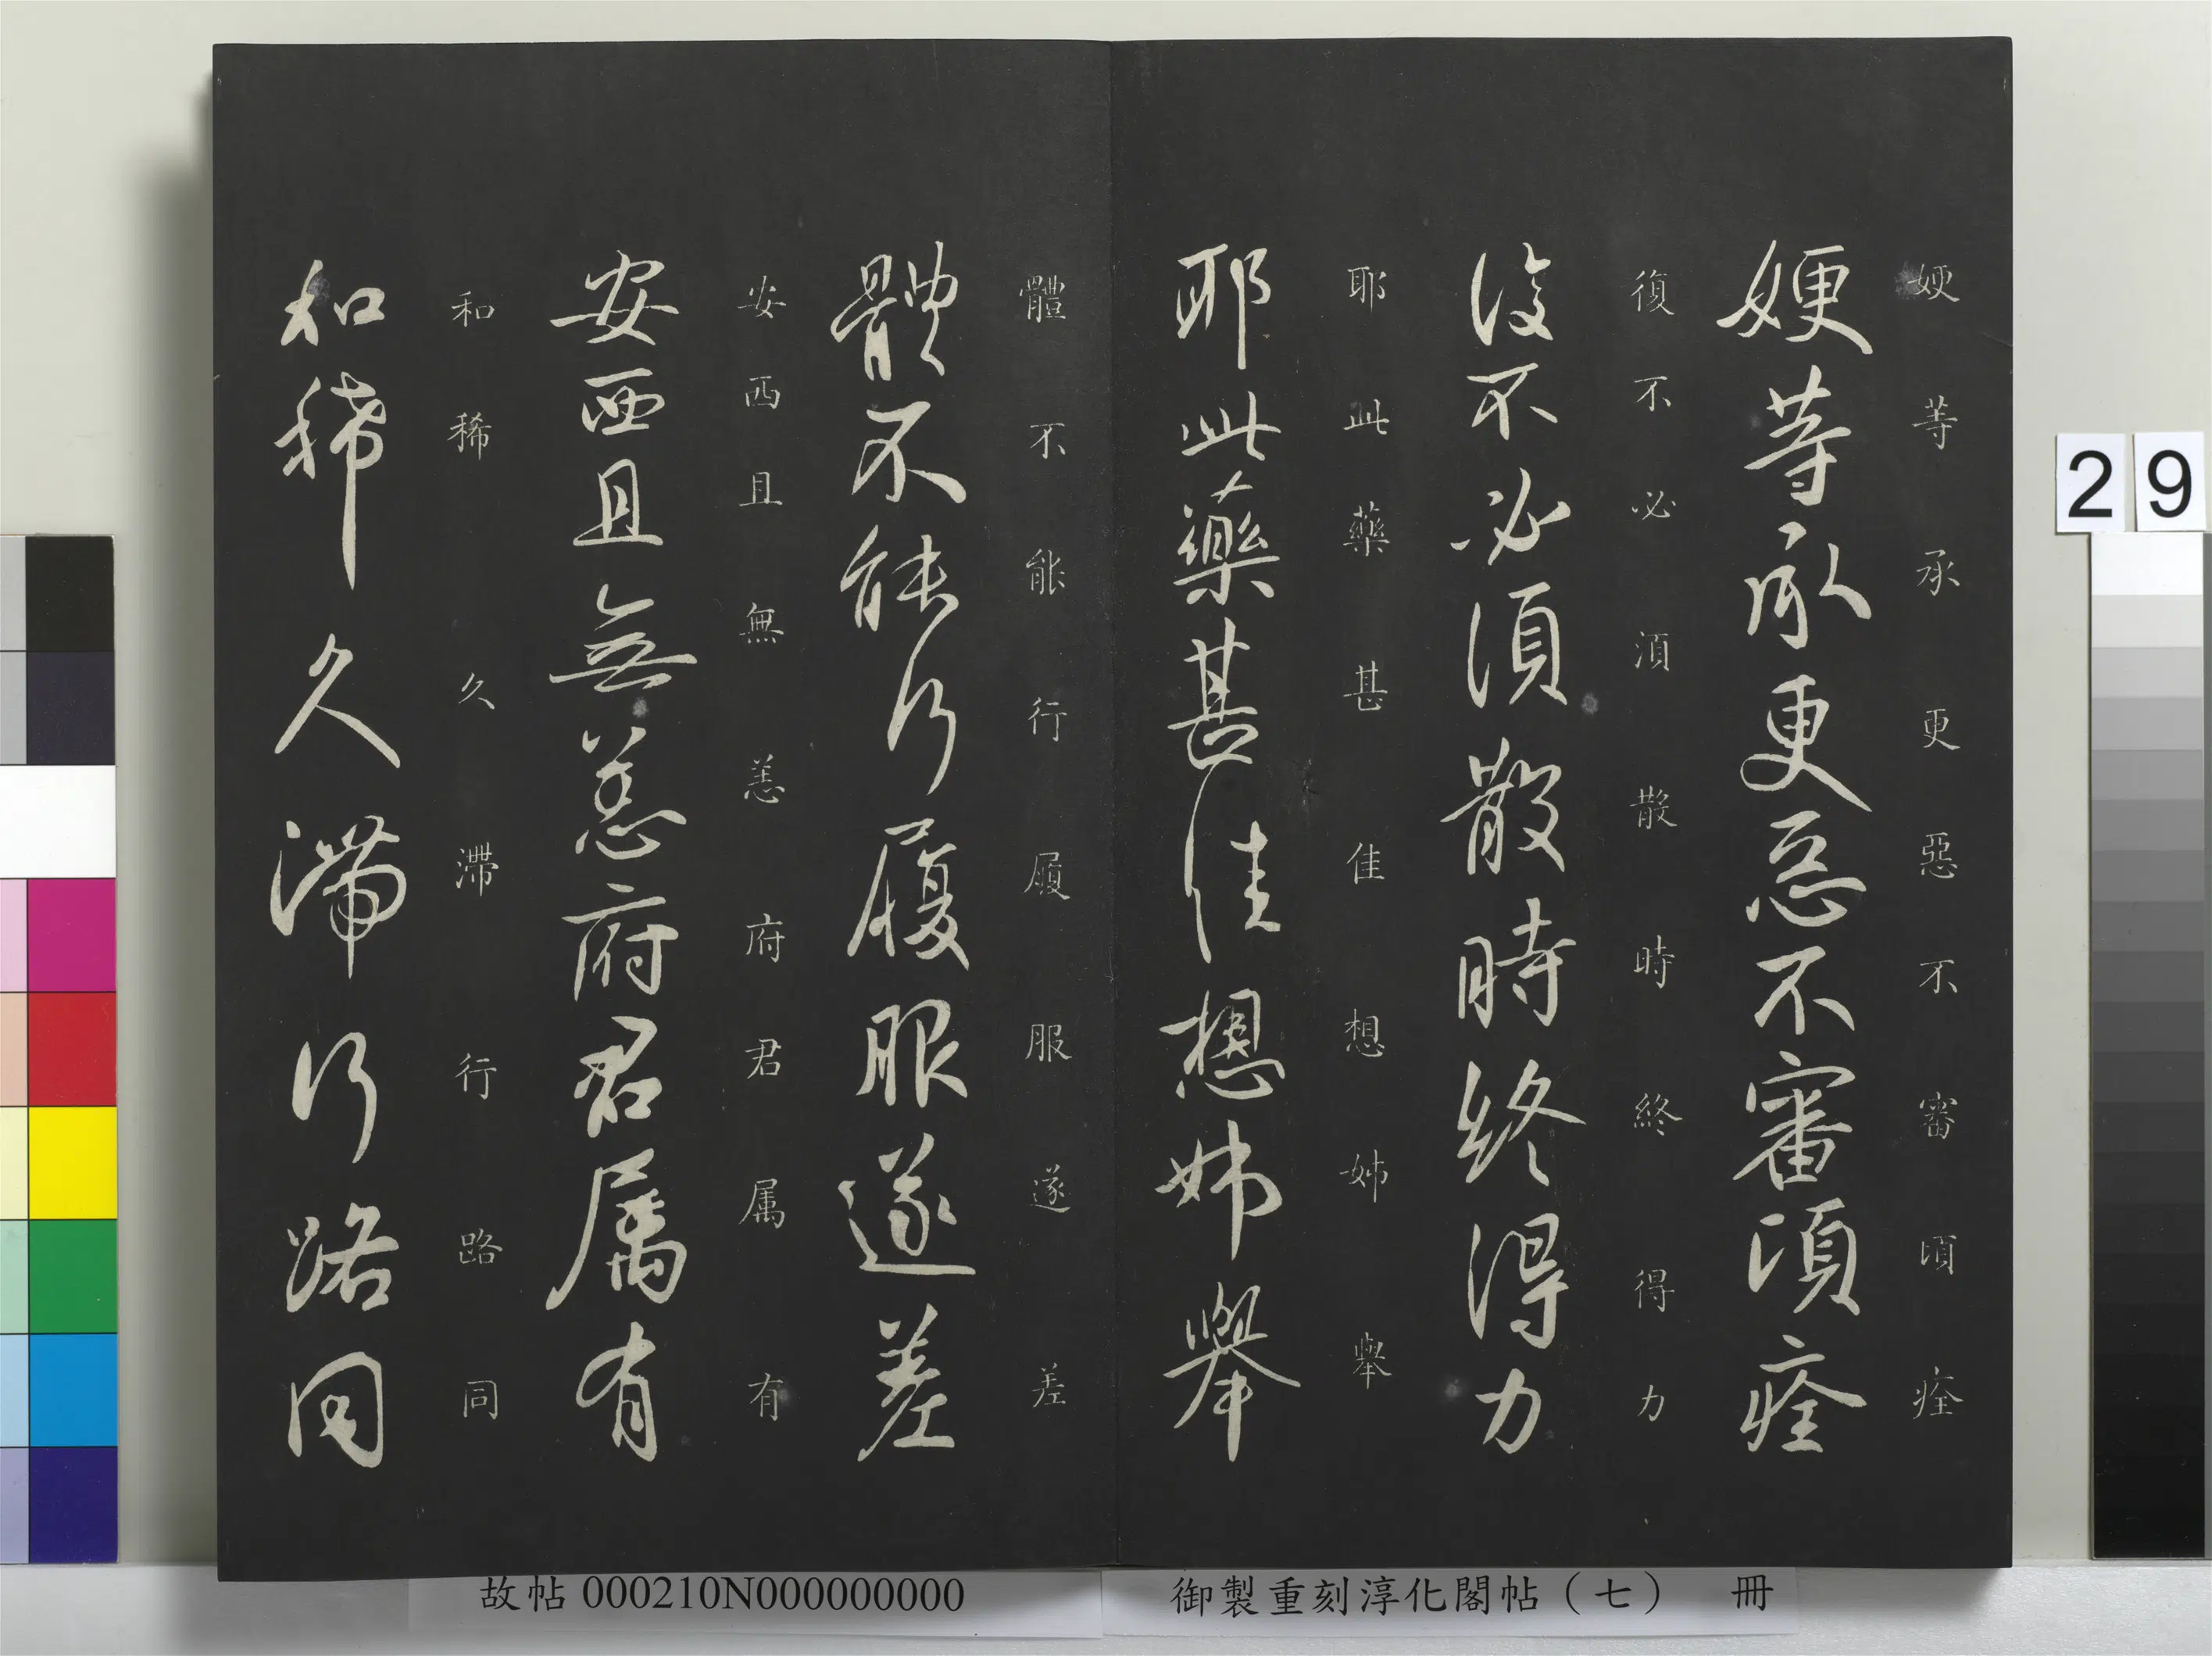 㛐等承更惡不審頃痊
㛐等承更惡不審頃痊
復不必須散時終得力
復不必須散時終得力
耶此藥甚佳想姊舉
耶此藥甚佳想姊舉
體不能行履服遂差
體不能行履服遂差
安西且無恙府君属有
安西且無恙府君属有
和稀久滯行路同
和稀久滯行路同
29
御製重刻淳化閣帖（七） 冊
故帖000210N000000000